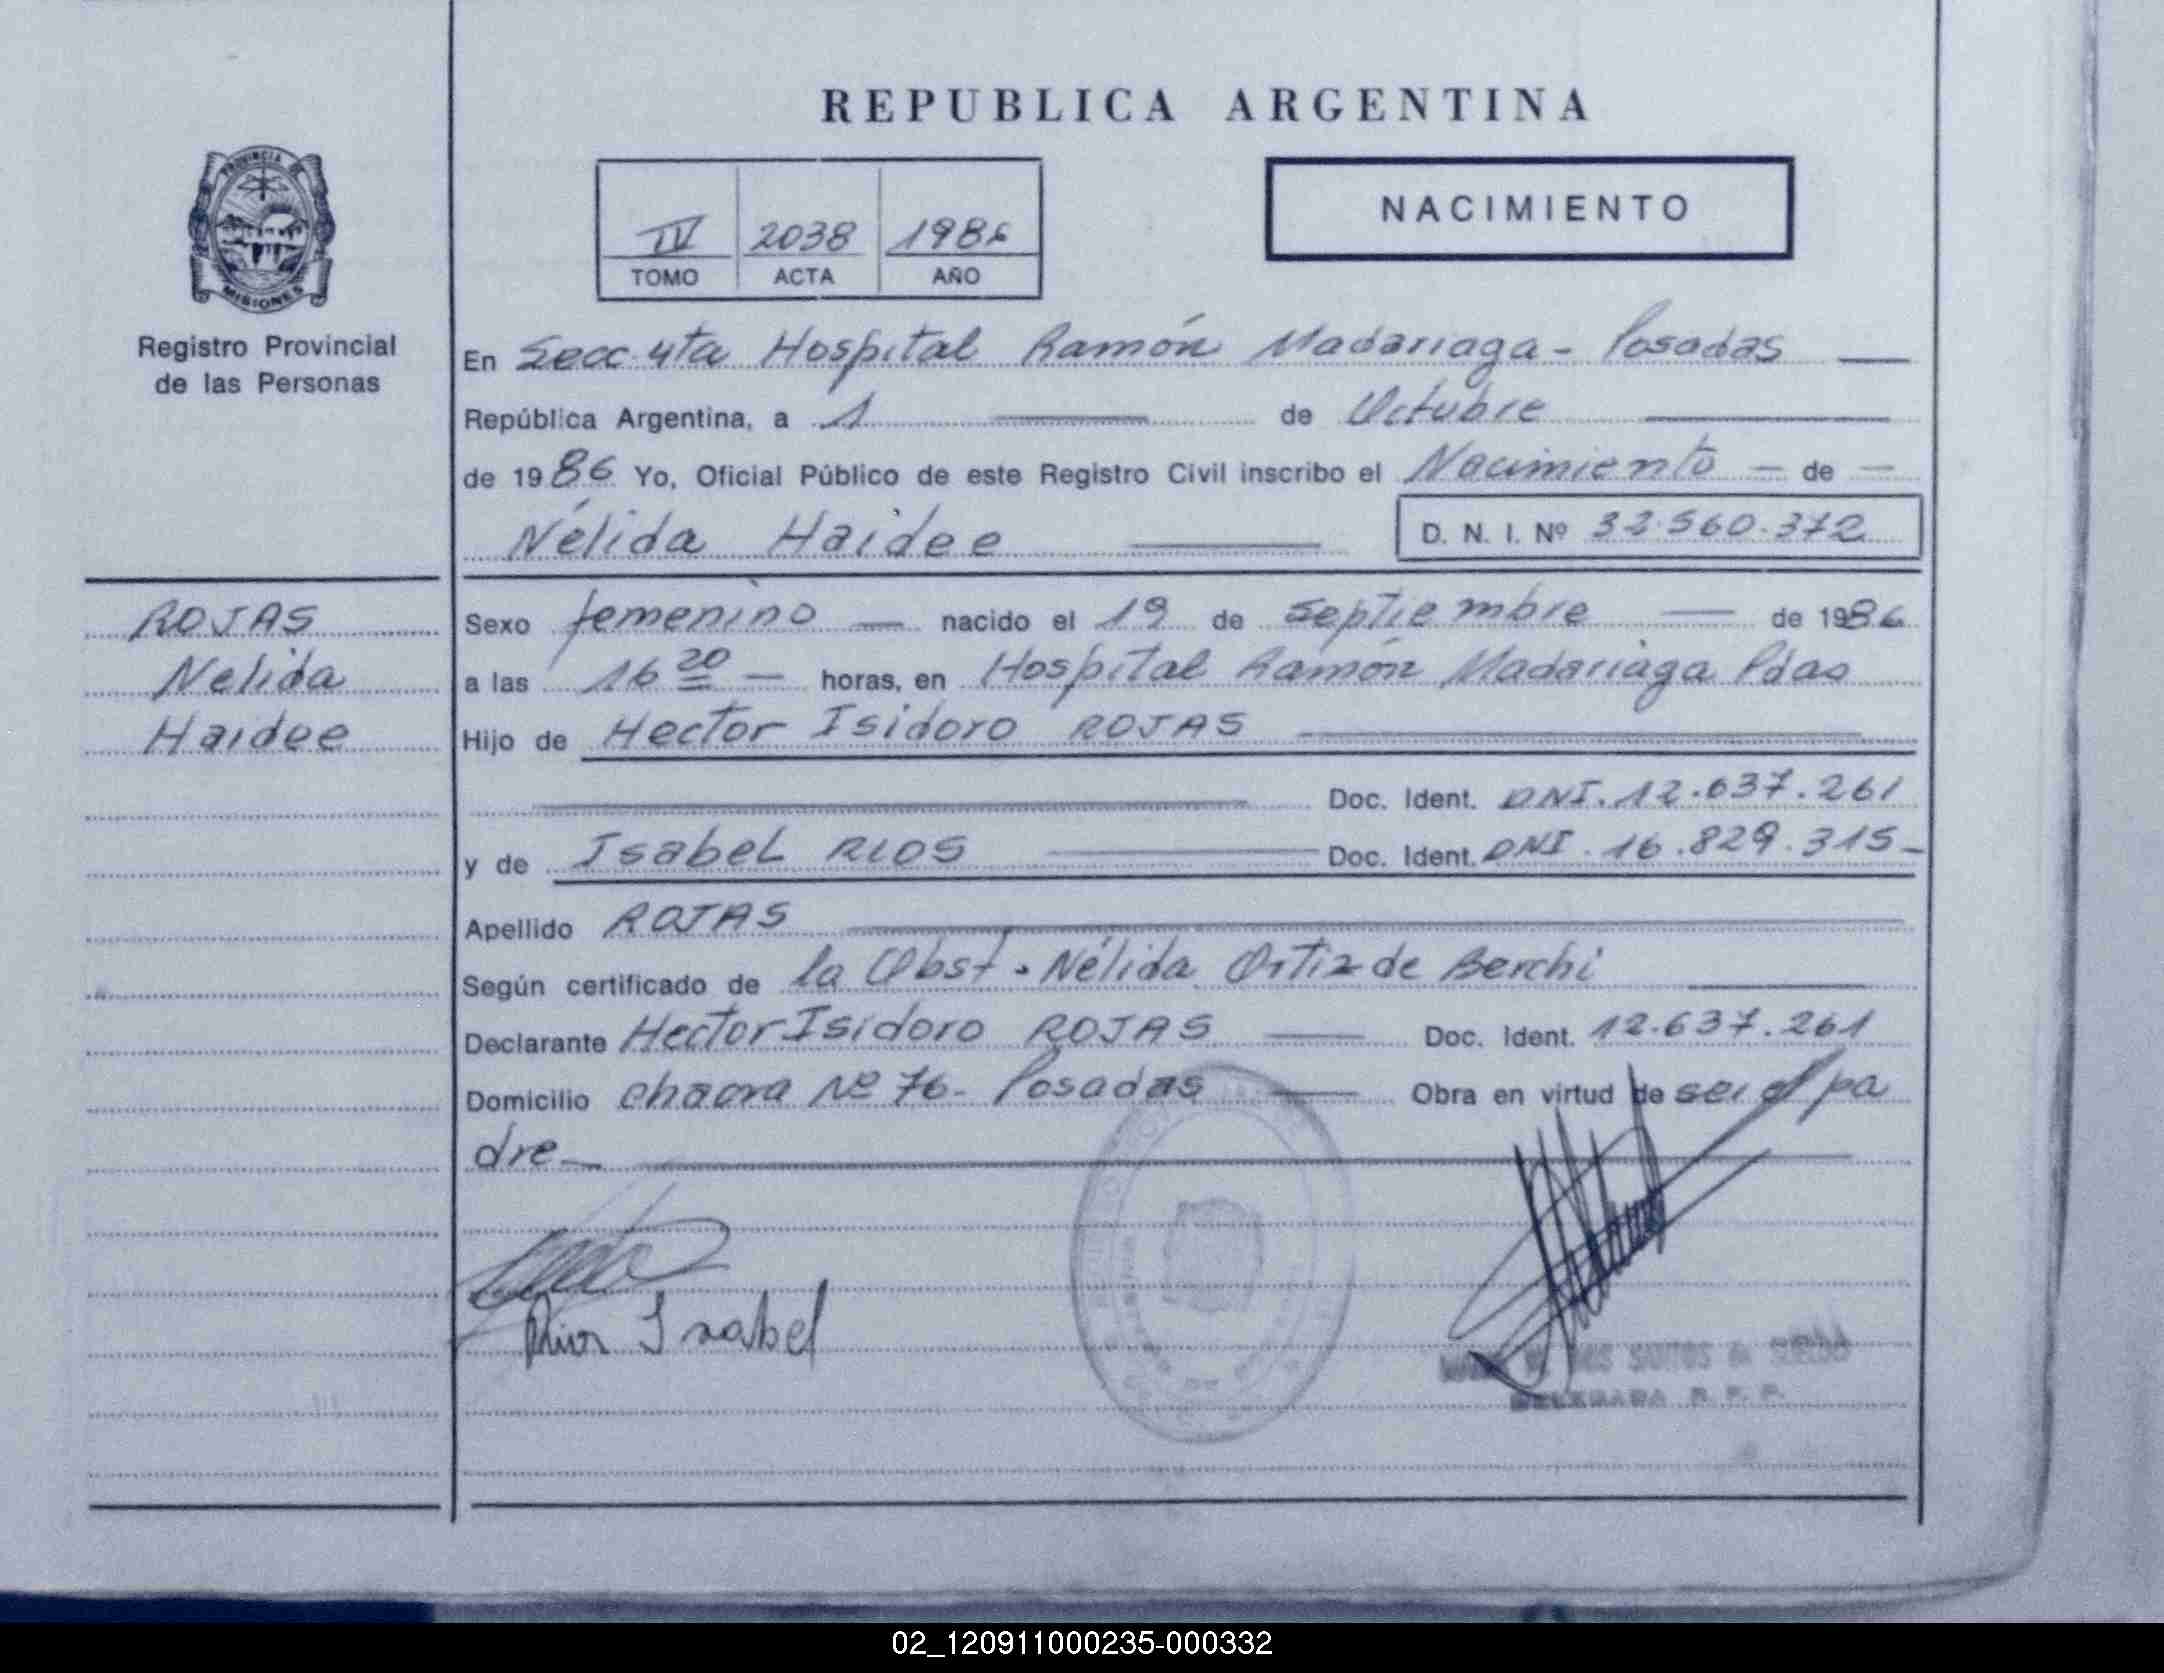 REPUBLICA ARGENTINA
PROVINCIA DE
MISIONES
Registro Provincial
de las Personas
IV 2038 1986
TOMO ACTA AÑO
NACIMIENTO
En Secc. 4ta Hospital Ramón Madariaga - Posadas
República Argentina, a 1 de Octubre
de 1986 Yo, Oficial Público de este Registro Civil inscribo el Nacimiento - de -
Nélida Haidee D. N. I. Nº 32.560.372
ROJAS
Nelida
Haidee
Sexo femenino - nacido el 19 de septiembre de 1986
a las 16 20 - horas, en Hospital Ramón Madariaga Pdas
Hijo de Hector Isidoro ROJAS
Doc. Ident. DNI. 12.637.261
y de Isabel RIOS Doc. Ident. DNI. 16.829.315-
Apellido ROJAS
Según certificado de la Obst. Nélida Ortiz de Berchi
Declarante Hector Isidoro ROJAS Doc. Ident. 12.637.261
Domicilio chacra Nº 76- Posadas Obra en virtud de ser el pa
dre-
Rios Isabel
DELEGADA R. P. P.
02_120911000235-000332